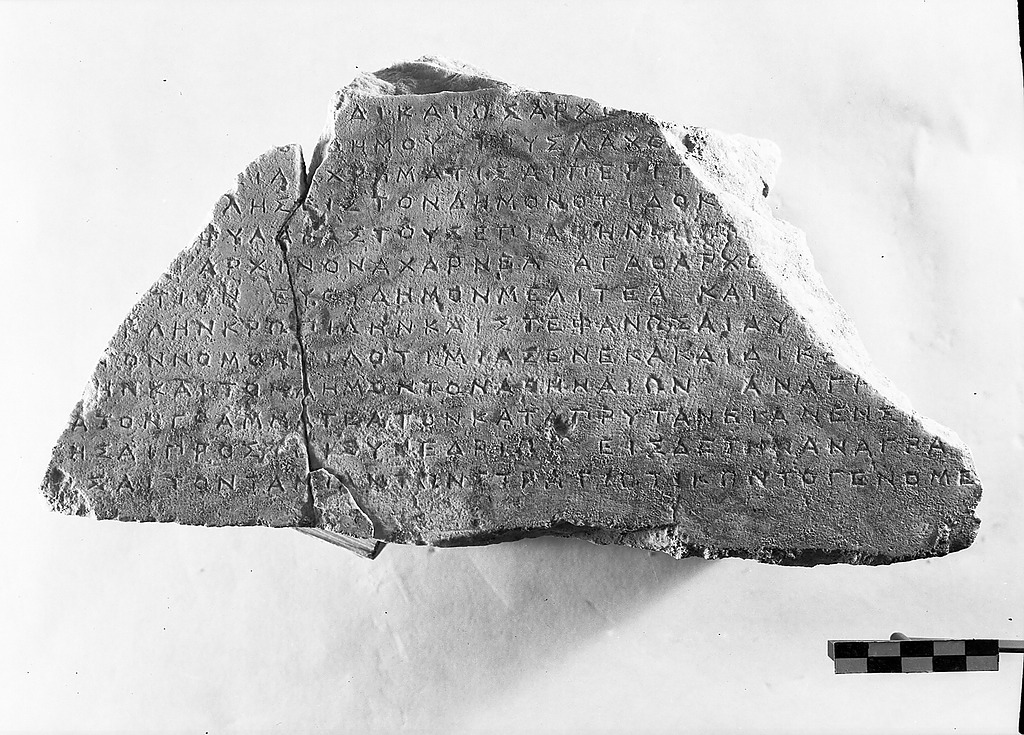 ΔΙΚΑΙΩΣΑΡΧΙ
ΔΗΜΟΥ ΤΟΥΣΛΑΧΟ
ΙΑΙ ΧΡΗΜΑΤΙΣΑΙΠΕΡΙΤ
ΛΗΣΕΙΣΤΟΝΔΗΜΟΝΟΤΙΔΟΚ
ΦΥΛΑΚΑΣΤΟΥΣΕΠΙΑΘΗΝ
ΑΡΧΙΝΟΝΑΧΑΡΝΕΑ ΑΓΑΘΑΡΧΟ
ΤΙΟΝ ΕΥΘΥΔΗΜΟΝΜΕΛΙΤΕΑ ΚΑΙ
ΛΗΝΚΡΩΠΙΔΗΝΚΑΙΣΤΕΦΑΝΩΣΑΙΑΥ
ΤΟΝΝΟΜΟΝΦΙΛΟΤΙΜΙΑΣΕΝΕΚΑΚΑΙΔΙΚ
ΗΝΚΑΙΤΟΝΔΗΜΟΝΤΟΝΑΘΗΝΑΙΩΝ ΑΝΑΓΡ
ΑΙΤΟΝΓΡΑΜΜΑΤΕΑΤΟΝΚΑΤΑΠΡΥΤΑΝΕΙΑΝΕΝΣ
ΗΣΑΙΠΡΟΣΤΩΙΣΥΝΕΔΡΙΩΙ ΕΙΣΔΕΤΗΝΑΝΑΓΡΑ
ΣΑΙΤΟΝΤΑΜΙΑΝΤΩΝΣΤΡΑΤΙΩΤΙΚΩΝΤΟΓΕΝΟΜΕ